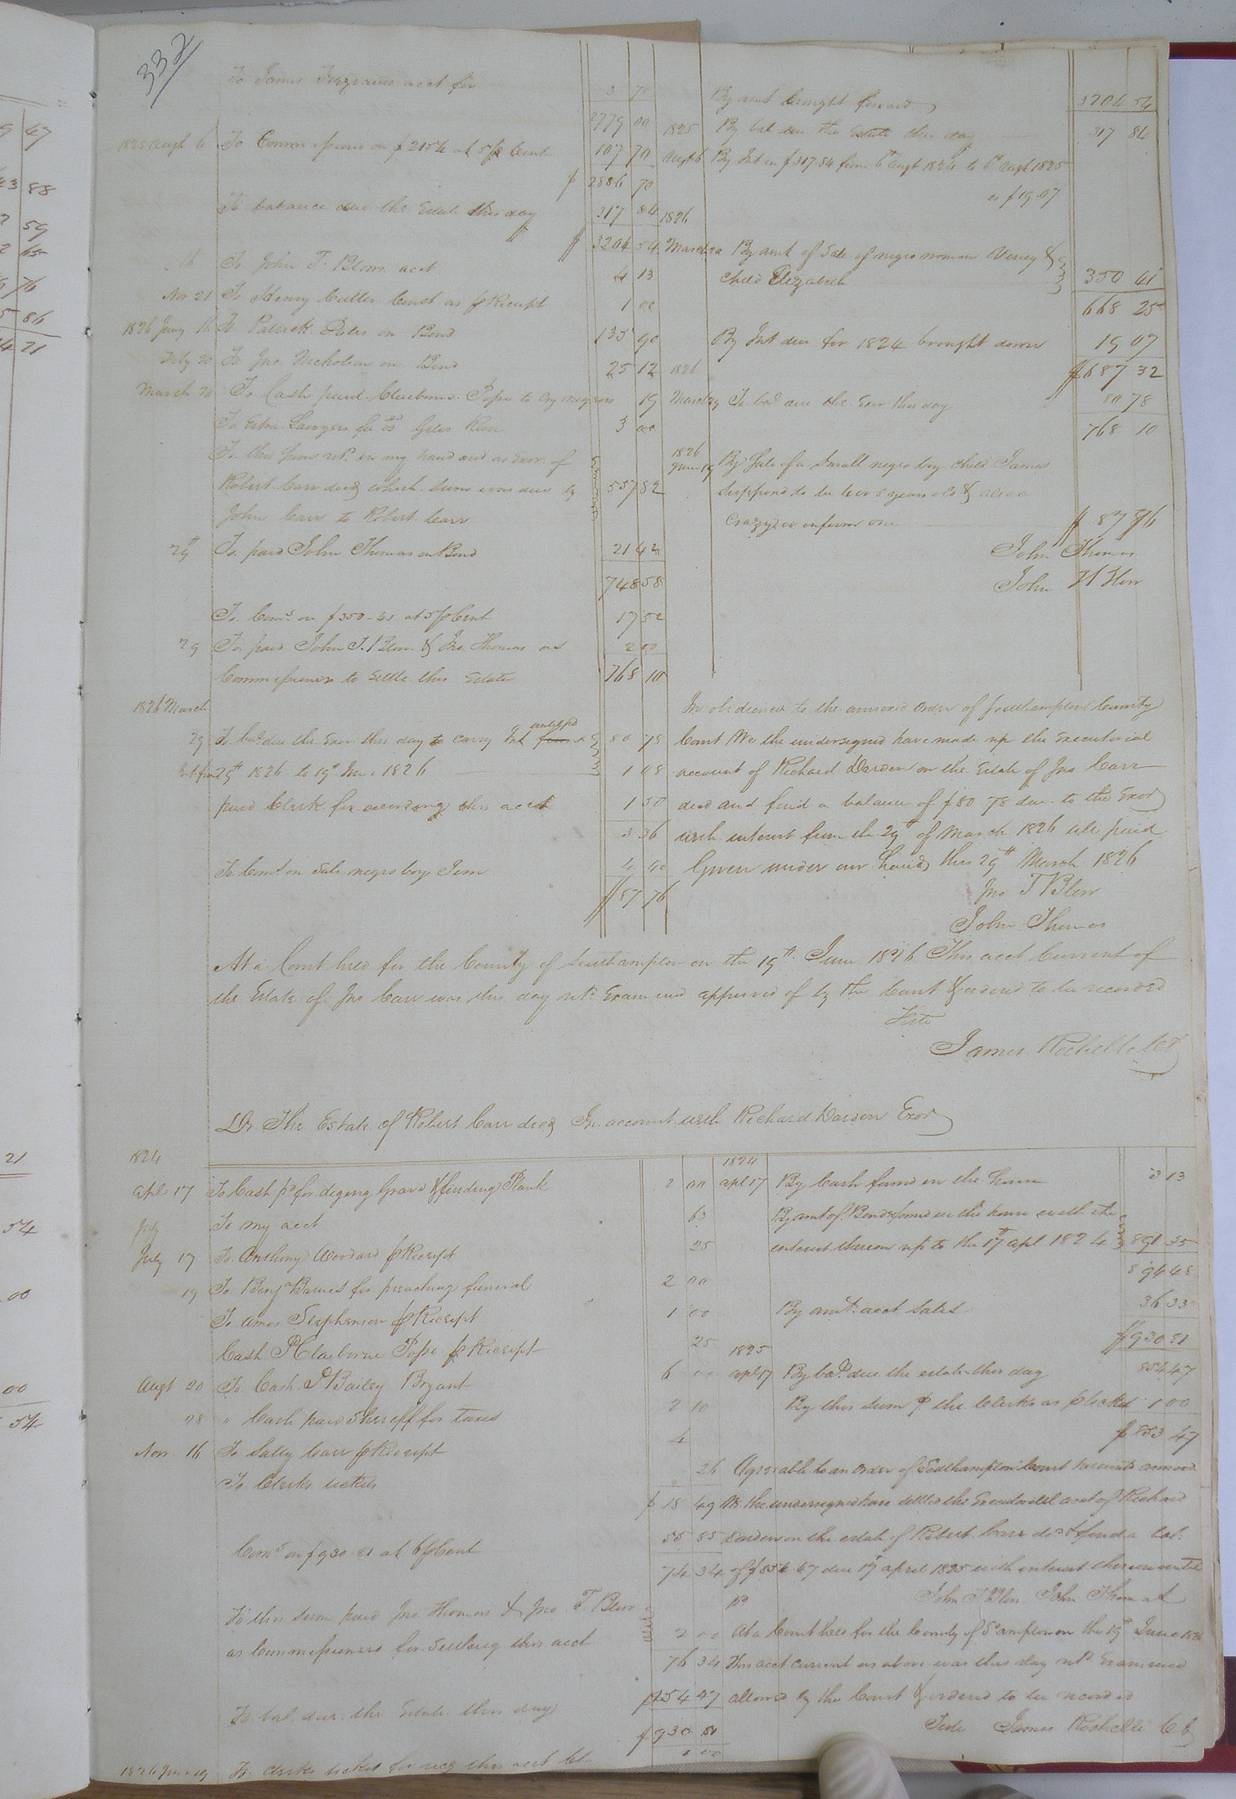 332
To James acct for 3 70
2779 00
1825 Augt 6 To Commissions on $2154 at 5 p Cent 107 70
$ 2886 70
To balance due the Estate this day 317 84
$ 3204 54
To John T. Blow acct 4 13
Nov 21 To Henry Cutler Const as p Receipt 1 00
1826 Jany 16 To Patrick Doles on Bond 135 90
Feby 20 To Jno Nicholson on Bond 25 12
March 20 To Cash paid Cleuborne Pope to Cry negroes 19
To Lawyers fee Giles 3 00
To this sum in my hand as Exor of
Robert Carr decd which sum was due by 557 82
John Carr to Robert Carr
29th To paid John Thomas on Bond 21 42
748 58
To Coms on $350-41 at 5 p Cent 17 52
29 To paid John T. Blow & Jno Thomas as 2 00
Commissioners to settle this Estate 768 10
By amt brought forward 3204 54
1825 By bal due the Estate this day 317 84
Augt 6 By Int on $317.84 from 6th Augt 1824 to 6th Augt 1825
is $19.07
1826
March 20 By amt of Sale of negro woman &
Child Elizabeth 350 41
668 25
By Int due for 1824 brought down 19 07
1826 $687 32
March 29 To bal due the Exor this day 80 78
768 10
1826
June 19 By Sale of a Small negro boy child James
Supposed to be two years old & also a
Crazy or inferior one $ 87 76
John Thomas
John T Blow
1826 March
29 To bal due the Exor this day to carry Int 80 78
Int from 29th 1826 to 19th Jun. 1826 1 08
paid Clerk for recording this acct 1 50
3 36
To Coms on Sale negro boy Jim 4 40
$ 87 76
In obedience to the annexed order of Southampton County
Court We the undersigned have made up the Executorial
account of Richard Darden on the Estate of Jno Carr
decd and find a balance of $80 78 due to the Exor
with interest from the 29th of March 1826 till paid
Given under our hands this 29th March 1826
Jno T Blow
John Thomas
At a Court held for the County of Southampton on the 19th June 1826 This acct Current of
the Estate of Jno Carr was this day retd Examined approved of by the Court & ordered to be recorded
Teste
James Rochelle C C
Dr The Estate of Robert Carr decd In account with Richard Darden Exor
1824
Apl 17 To Cash pd for diging Grave & finding Plank 2 00
July To my acct 63
July 17 To Anthony Woodard p Receipt 25
19 To Benj Barnes for preaching funeral 2 00
To Amos Stephenson p Receipt 1 00
Cash P Claiborne Pope p Receipt 25
Augt 20 To Cash P Bailey Bryant 6 00
28 " Cash paid Sheriff for taxes 2 10
Nov. 16 To Sally Carr p Receipt 4
To Clerks tickets 26
$ 18 49
Coms on $930 81 at 6 p Cent 55 85
74 34
To this sum paid Jno Thomas & Jno T. Blow
as Commissioners for Settling this acct 2 00
76 34
To bal due the Estate this day 854 47
$ 930 81
1826 June 19 To clerks ticket for recg this acct 1 00
1824
Apl 17 By Cash found in the house 3 13
By amt of Bonds found in the house with the
interest thereon up to the 17th Apl 1824 891 35
894 48
By amt acct Sales 36 33
$930 81
1825
Apl 17 By bal due the estate this day 854 47
By this sum p the Clerks as p ticket 1 00
$ 853 47
Agreeable to an order of Southampton Court hereunto annexed
We the undersigned have settled the Executorial acct of Richard
Darden on the estate of Robert Carr decd & find a bal.
of $854 47 due 17th April 1825 with interest thereon until
pd John T Blow John Thomas
At a Court held for the County of Sampton on the 19th June 1826
This acct current as above was this day retd Examined
allowed by the Court & ordered to be recorded
Teste James Rochelle C C
21
54
00
00
54